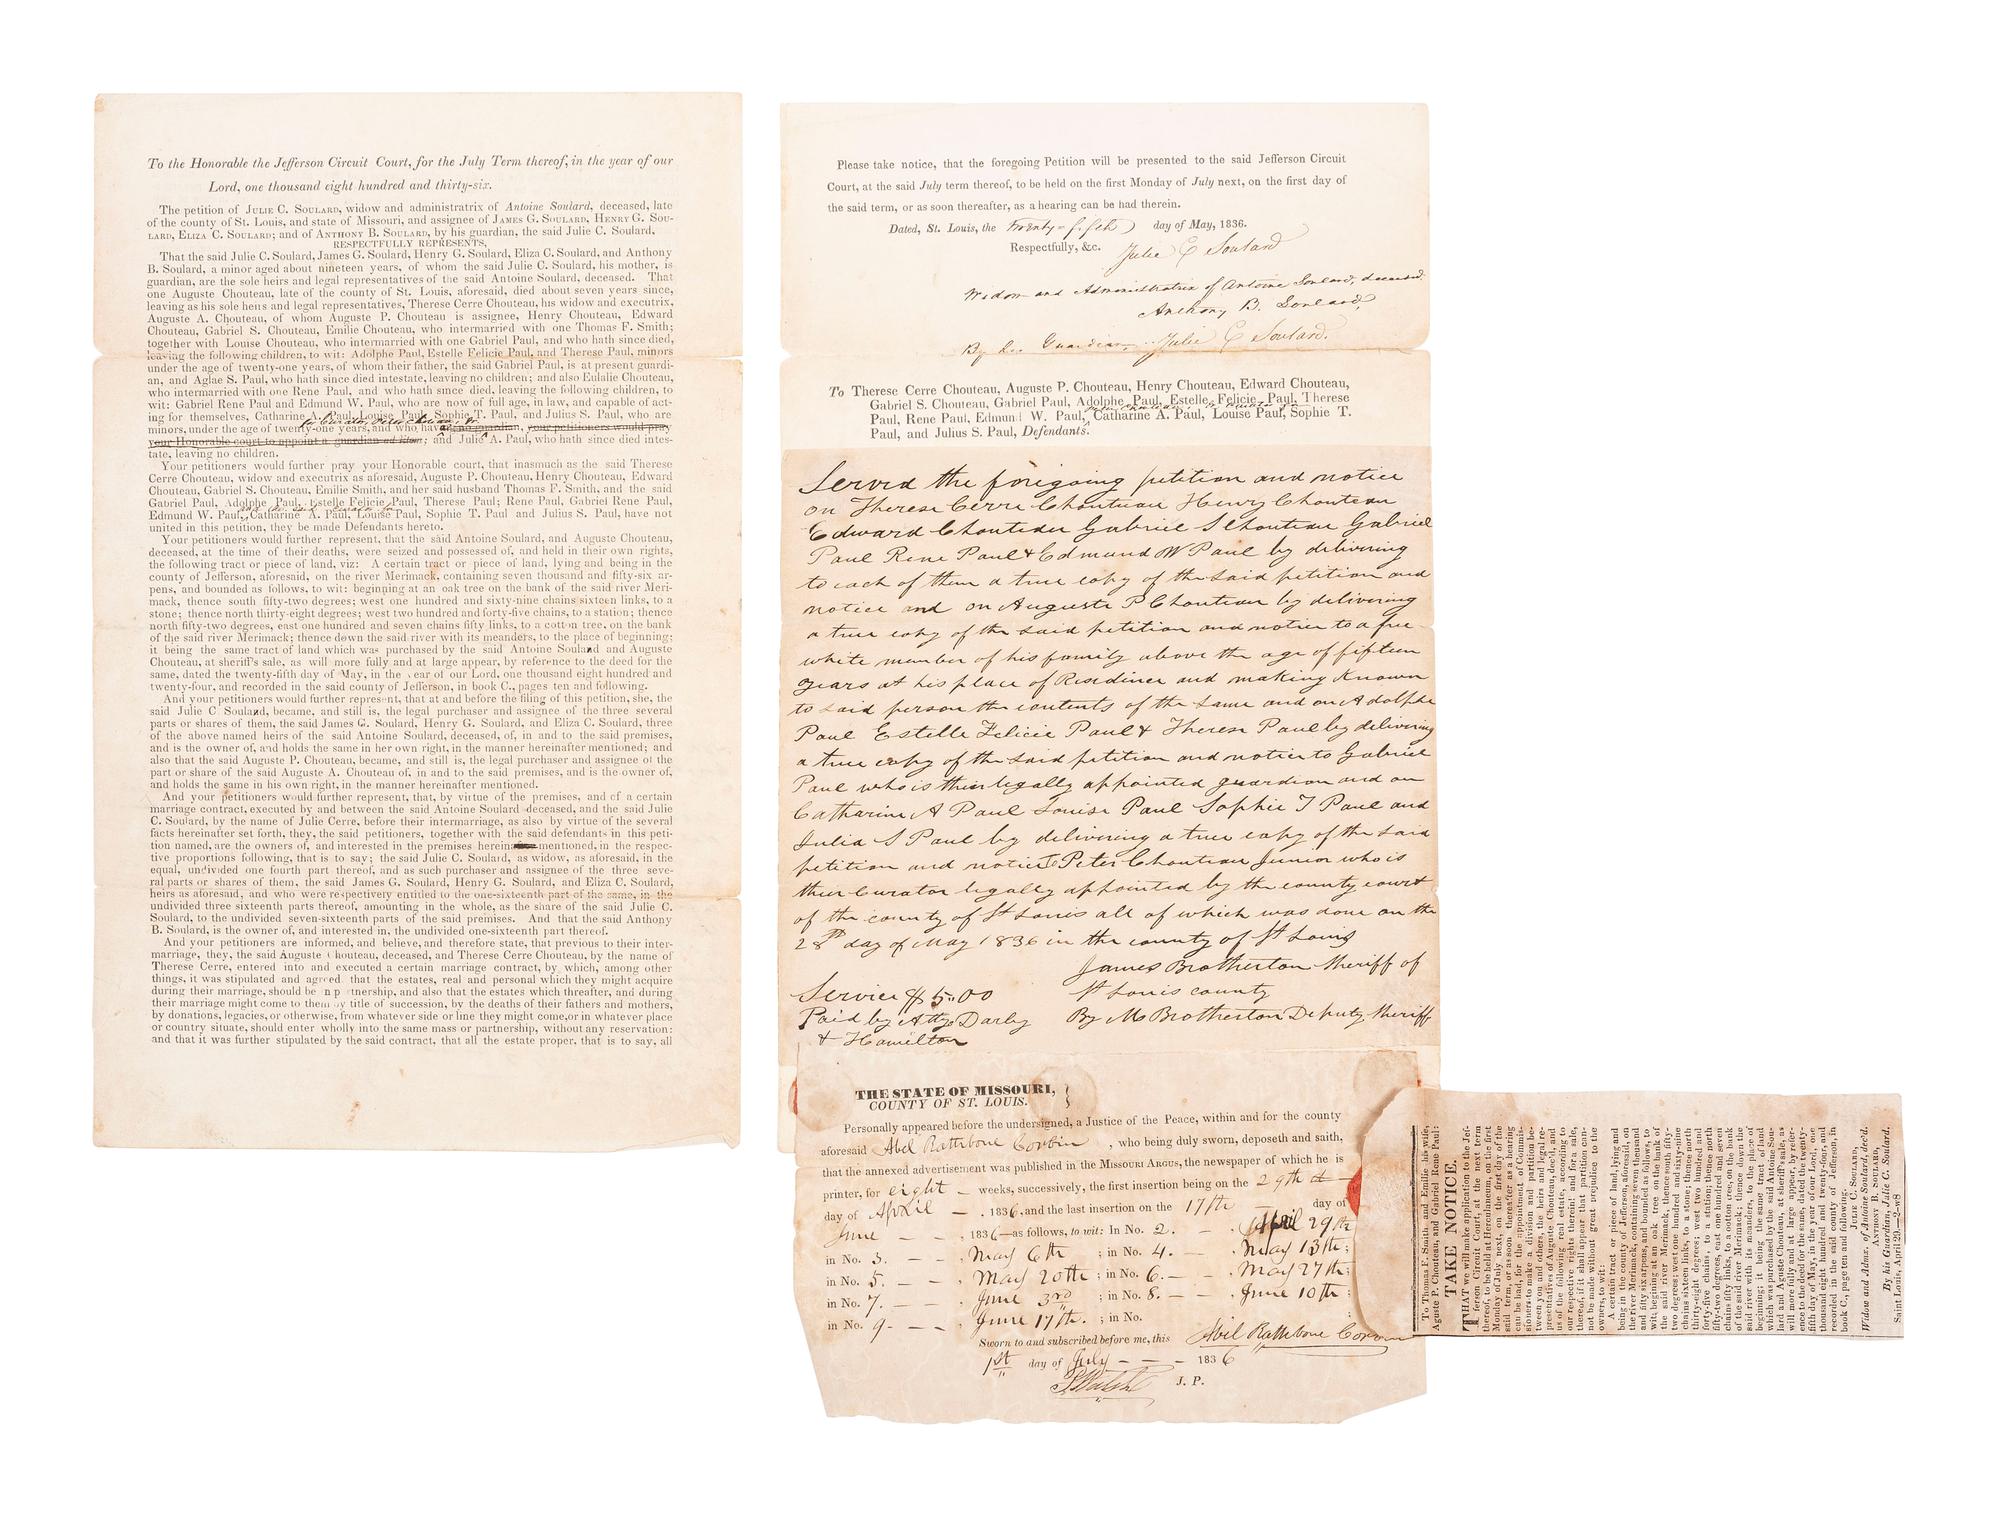 To the Honorable the Jefferson Circuit Court, for the July Term thereof, in the year of our
Lord, one thousand eight hundred and thirty-six.
The petition of JULIE C. SOULARD, widow and administratrix of Antoine Soulard, deceased, late
of the county of St. Louis, and state of Missouri, and assignee of JAMES G. SOULARD, HENRY G. SOU-
LARD, ELIZA C. SOULARD; and of ANTHONY B. SOULARD, by his guardian, the said Julie C. Soulard,
RESPECTFULLY REPRESENTS,
That the said Julie C. Soulard, James G. Soulard, Henry G. Soulard, Eliza C. Soulard, and Anthony
B. Soulard, a minor aged about nineteen years, of whom the said Julie C. Soulard, his mother, is
guardian, are the sole heirs and legal representatives of the said Antoine Soulard, deceased. That
one Auguste Chouteau, late of the county of St. Louis, aforesaid, died about seven years since,
leaving as his sole heirs and legal representatives, Therese Cerre Chouteau, his widow and executrix,
Auguste A. Chouteau, of whom Auguste P. Chouteau is assignee, Henry Chouteau, Edward
Chouteau, Gabriel S. Chouteau, Emilie Chouteau, who intermarried with one Thomas F. Smith;
together with Louise Chouteau, who intermarried with one Gabriel Paul, and who hath since died,
leaving the following children, to wit: Adolphe Paul, Estelle Felicie Paul, and Therese Paul, minors
under the age of twenty-one years, of whom their father, the said Gabriel Paul, is at present guardi-
an, and Aglae S. Paul, who hath since died intestate, leaving no children; and also Eulalie Chouteau,
who intermarried with one Rene Paul, and who hath since died, leaving the following children, to
wit: Gabriel Rene Paul and Edmund W. Paul, who are now of full age, in law, and capable of act-
ing for themselves, Catharine A. Paul, Louise Paul, Sophie T. Paul, and Julius S. Paul, who are
minors, under the age of twenty-one years, and who have no guardian, your petitioners would pray
your Honorable court to appoint a guardian ad litem; and Julie A. Paul, who hath since died intes-
tate, leaving no children.
Your petitioners would further pray your Honorable court, that inasmuch as the said Therese
Cerre Chouteau, widow and executrix as aforesaid, Auguste P. Chouteau, Henry Chouteau, Edward
Chouteau, Gabriel S. Chouteau, Emilie Smith, and her said husband Thomas F. Smith, and the said
Gabriel Paul, Adolphe Paul, Estelle Felicie Paul, Therese Paul; Rene Paul, Gabriel Rene Paul,
Edmund W. Paul, Catharine A. Paul, Louise Paul, Sophie T. Paul and Julius S. Paul, have not
united in this petition, they be made Defendants hereto.
Your petitioners would further represent, that the said Antoine Soulard, and Auguste Chouteau,
deceased, at the time of their deaths, were seized and possessed of, and held in their own rights,
the following tract or piece of land, viz: A certain tract or piece of land, lying and being in the
county of Jefferson, aforesaid, on the river Merimack, containing seven thousand and fifty-six ar-
pens, and bounded as follows, to wit: beginning at an oak tree on the bank of the said river Meri-
mack, thence south fifty-two degrees; west one hundred and sixty-nine chains sixteen links, to a
stone; thence north thirty-eight degrees; west two hundred and forty-five chains, to a station; thence
north fifty-two degrees, east one hundred and seven chains fifty links, to a cotton tree, on the bank
of the said river Merimack; thence down the said river with its meanders, to the place of beginning;
it being the same tract of land which was purchased by the said Antoine Souland and Auguste
Chouteau, at sheriff's sale, as will more fully and at large appear, by reference to the deed for the
same, dated the twenty-fifth day of May, in the year of our Lord, one thousand eight hundred and
twenty-four, and recorded in the said county of Jefferson, in book C., pages ten and following.
And your petitioners would further represent, that at and before the filing of this petition, she, the
said Julie C Souland, became, and still is, the legal purchaser and assignee of the three several
parts or shares of them, the said James G. Soulard, Henry G. Soulard, and Eliza C. Soulard, three
of the above named heirs of the said Antoine Soulard, deceased, of, in and to the said premises,
and is the owner of, and holds the same in her own right, in the manner hereinafter mentioned; and
also that the said Auguste P. Chouteau, became, and still is, the legal purchaser and assignee of the
part or share of the said Auguste A. Chouteau of, in and to the said premises, and is the owner of,
and holds the same in his own right, in the manner hereinafter mentioned.
And your petitioners would further represent, that, by virtue of the premises, and of a certain
marriage contract, executed by and between the said Antoine Soulard deceased, and the said Julie
C. Soulard, by the name of Julie Cerre, before their intermarriage, as also by virtue of the several
facts hereinafter set forth, they, the said petitioners, together with the said defendants in this peti-
tion named, are the owners of, and interested in the premises herein mentioned, in the respec-
tive proportions following, that is to say; the said Julie C. Soulard, as widow, as aforesaid, in the
equal, undivided one fourth part thereof, and as such purchaser and assignee of the three seve-
ral parts or shares of them, the said James G. Soulard, Henry G. Soulard, and Eliza C. Soulard,
heirs as aforesaid, and who were respectively entitled to the one-sixteenth part of the same, in the
undivided three sixteenth parts thereof, amounting in the whole, as the share of the said Julie C.
Soulard, to the undivided seven-sixteenth parts of the said premises. And that the said Anthony
B. Soulard, is the owner of, and interested in, the undivided one-sixteenth part thereof.
And your petitioners are informed, and believe, and therefore state, that previous to their inter-
marriage, they, the said Auguste Chouteau, deceased, and Therese Cerre Chouteau, by the name of
Therese Cerre, entered into and executed a certain marriage contract, by which, among other
things, it was stipulated and agreed that the estates, real and personal which they might acquire
during their marriage, should be in p tnership, and also that the estates which threafter, and during
their marriage might come to them by title of succession, by the deaths of their fathers and mothers,
by donations, legacies, or otherwise, from whatever side or line they might come, or in whatever place
or country situate, should enter wholly into the same mass or partnership, without any reservation:
and that it was further stipulated by the said contract, that all the estate proper, that is to say, all
Please take notice, that the foregoing Petition will be presented to the said Jefferson Circuit
Court, at the said July term thereof, to be held on the first Monday of July next, on the first day of
the said term, or as soon thereafter, as a hearing can be had therein.
Dated, St. Louis, the Twenty-fifth day of May, 1836.
Respectfully, &c. Julie C Soulard
Widow and Administratrix of Antoine Soulard, deceased.
Anthony B. Soulard,
By his Guardian, Julie C Soulard.
To Therese Cerre Chouteau, Auguste P. Chouteau, Henry Chouteau, Edward Chouteau,
Gabriel S. Chouteau, Gabriel Paul, Adolphe Paul, Estelle Felicie Paul, Therese
Paul, Rene Paul, Edmund W. Paul, Catharine A. Paul, Louise Paul, Sophie T.
Paul, and Julius S. Paul, Defendants.
Served the foregoing petition and notice
on Therese Cerre Chouteau Henry Chouteau
Edward Chouteau Gabriel S Chouteau Gabriel
Paul Rene Paul & Edmund W Paul by delivering
to each of them a true copy of the said petition and
notice and on Auguste P Chouteau by delivering
a true copy of the said petition and notice to a free
white member of his family above the age of fifteen
years at his place of Residence and making Known
to said person the contents of the same and on Adolphe
Paul Estelle Felicie Paul & Therese Paul by delivering
a true copy of the said petition and notice to Gabriel
Paul who is their legally appointed guardian and on
Catharine A Paul Louise Paul Sophie T Paul and
Julia S Paul by delivering a true copy of the said
petition and notice to Peter Chouteau Junior who is
their Curator legally appointed by the county court
of the county of St Louis all of which was done on the
28th day of May 1836 in the county of St Louis
James Brotherton Sheriff of
St Louis county
By M Brotherton Deputy Sheriff
Service $5.00
Paid by Attys Darby
& Hamilton
THE STATE OF MISSOURI,
COUNTY OF ST. LOUIS.
Personally appeared before the undersigned, a Justice of the Peace, within and for the county
aforesaid Abel Rathbone Corbin, who being duly sworn, deposeth and saith,
that the annexed advertisement was published in the MISSOURI ARGUS, the newspaper of which he is
printer, for eight weeks, successively, the first insertion being on the 29th
day of April 1836, and the last insertion on the 17th day of
June 1836—as follows, to wit: In No. 2. April 29th
in No. 3. May 6th; in No. 4. May 13th;
in No. 5. May 20th; in No. 6. May 27th;
in No. 7. June 3rd; in No. 8. June 10th;
in No. 9 June 17th.; in No.
Sworn to and subscribed before me, this Abel Rathbone Corbin
1st day of July 1836
J. P.
To Thomas F. Smith, and Emilie his wife,
Aguste P. Chouteau, and Gabriel Rene Paul:
TAKE NOTICE.
THAT we will make application to the Jef-
ferson Circuit Court, at the next term
thereof, to be held at Herculaneum, on the first
Monday of July next, on the first day of the
said term, or as soon thereafter as a hearing
can be had, for the appointment of Commis-
sioners to make a division and partition be-
tween you and others, the heirs and legal re-
presentatives of Auguste Chouteau, dec'd, and
us of the following real estate, according to
our respective rights therein! and for a sale,
thereof, if it shall appear that partition can-
not be made without great prejudice to the
owners, to wit:
A certain tract or piece of land, lying and
being in the county of Jefferson, aforesaid, on
the river Merimack, containing seven thousand
and fifty six arpens, and bounded as follows, to
wit: beginning at an oak tree on the bank of
the said river Merimack, thence south fifty-
two degrees; west one hundred and sixty-nine
chains sixteen links, to a stone; thence north
thirty-eight degrees; west two hundred and
forty-five chains, to a station; thence north
fifty-two degrees, east one hundred and seven
chains fifty links, to a cotton tree, on the bank
of the said river Merimack; thence down the
said river with its meanders, to the place of
beginning; it being the same tract of land
which was purchased by the said Antoine Sou-
lard and Aguste Chouteau, at sheriff's sale, as
will more fully and at large appear, by refer-
ence to the deed for the same, dated the twenty-
fifth day of May, in the year of our Lord, one
thousand eight hundred and twenty-four, and
recorded in the said county of Jefferson, in
book C., page ten and following.
JULIE C. SOULARD,
Widow and Admx. of Antoine Soulard, dec'd.
ANTHONY B. SOULARD,
By his Guardian, Julie C. Soulard.
Saint Louis, April 29.—2-w8